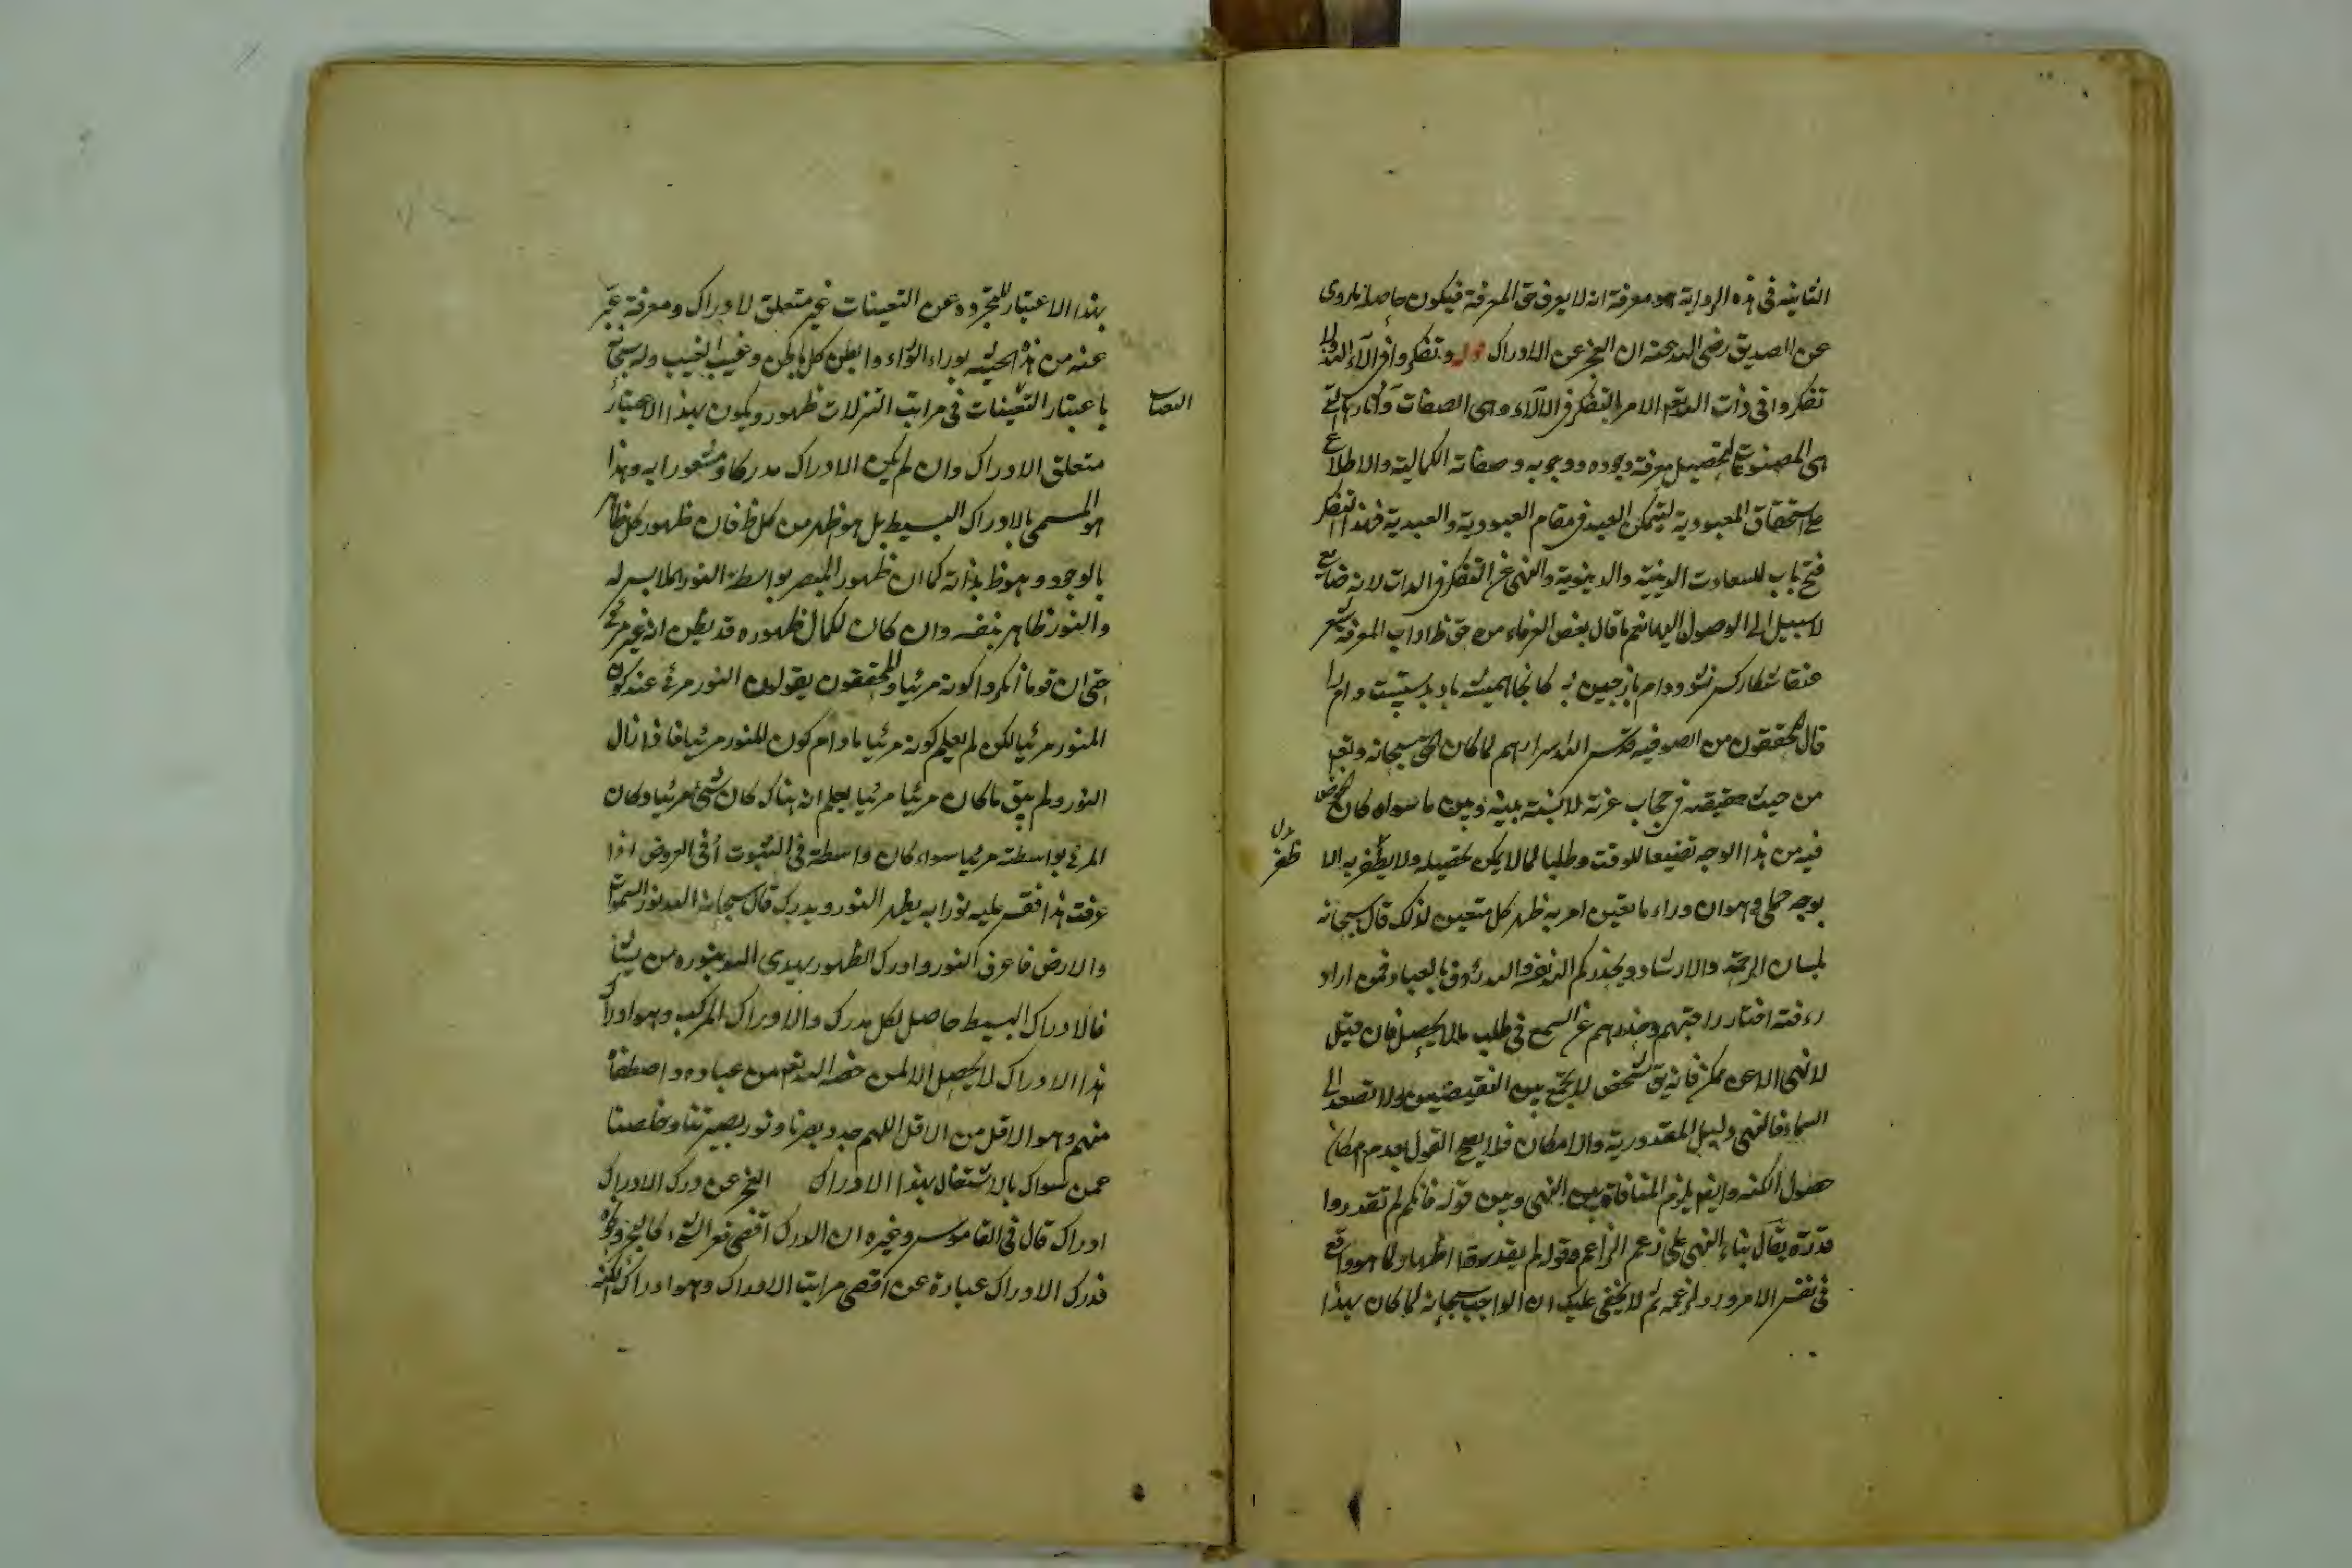 الثانية في هذه الرواية هو معرفة انه لا يعرف حق المعرفة فيكون حاصله ما روى
عن الصديق رضي الله عنه ان العجز عن الادراك قوله وتفكروا في آلاء الله ولا
تفكروا في ذات الله تعم الامر بالتفكر في الآلاء وهي الصفات وآثاره التي
هي المصنوعات لتحصيل معرفة وجوده ووجوبه وصفاته الكمالية والاطلاع
على استحقاق المعبودية ليتمكن العبد في مقام العبودية والعبدية فهذا التفكر
فتح باب للسعادت الدينية والدنيوية والنهي عن التفكر في الذات لانه ضايع
لا سبيل الى الوصول اليها نعم ما قال بعض العرفاء من حق ظ اداب المعرفة شعر
عنقا شكار كس نشود دام باز چين كه كانجا هميشه باد بدستست دام را
قال المحققون من الصوفية قدس الله اسرارهم لما كان الحق سبحانه وتعم
من حيث حقيقته في حجاب عزته لا نسبة بينه وبين ما سواه كان الخوض
فيه من هذا الوجه تضييعا للوقت وطلبا لما لا يمكن تحصيله ولا يظفر به الا
ظفر
بوجه جملي وهو ان وراء ما تعين امر به ظهر كل متعين لذلك قال سبحانه
بلسان الرحمة والارشاد ويحذركم الله نفسه والله رؤوف بالعباد فمن اراد
رءفته اختار راحتهم وحذرهم عن السعي في طلب ما لا يحصل فان قيل
لا نهي الا عن ممكن فانه يق لشخص لا يجمع بين النقيضين ولا تصعد الى
السماء فالنهي دليل المقدورية والامكان فلا يصح القول بعدم امكان
حصول الكنه وايضا يلزم المنافاة بين النهي وبين قوله فانكم لم تقدروا
قدره يقال بناء النهي على زعم الزاعم وقوله لم يقدروا اظهار لما هو واقع
في نفس الامر ورد لزعمه ثم لا يخفى عليك ان الواجب سبحانه لما كان بهذا
بهذا الاعتبار للتجرده عن التعينات غير متعلق لادراك ومعرفة عبر
عنه من هذه الحيثية بوراء الوراء وابطن كل باطن وغيب الغيب وله سبحانه
باعتبار التعينات في مراتب التنزلات ظهور ويكون بهذا الاعتبار
متعلق الادراك وان لم يكن الادراك مدركا ومشعورا به وهذا
هو المسمى بالادراك البسيط بل هو اظهر من كل ظ فان ظهور كل ظاهر
بالوجود وهو ظ بذاته كما ان ظهور المبصر بواسطة النور الملابس له
والنور ظاهر بنفسه وان كان لكمال ظهوره قد يظن انه غير مرئي
حتى ان قوما انكروا كونه مرئيا والمحققون يقولون النور مرئي عند كون
المنور مرئيا لكن لم يعلم كونه مرئيا ما دام كون المنور مرئيا فاذا زال
النور ولم يبق ما كان مرئيا مرئيا يعلم انه هناك كان شيئ مرئيا وكان
المرئي بواسطته مرئيا سواء كان واسطة في الثبوت او في العروض اذا
عرفت هذا فقس عليه نورا به يظهر النور ويدرك قال سبحانه الله نور السموات
والارض فاعرف النور وادرك الظهور يهدي الله بنوره من يشاء
فالادراك البسيط حاصل لكل مدرك والادراك المركب وهو ادراك
هذا الادراك لا يحصل الا لمن خصه الله تعم من عباده واصطفاه
منهم وهو الاقل من الاقل اللهم حدد بصرنا ونور بصيرتنا وخلصنا
عمن سواك بالاشتغال بهذا الادراك العجز عن درك الادراك
ادراك قال في القاموس وغيره ان الدرك اقصى قعر الشيء كالبحر ونحوه
فدرك الادراك عبارة عن اقصى مراتب الادراك وهو ادراك الكنه